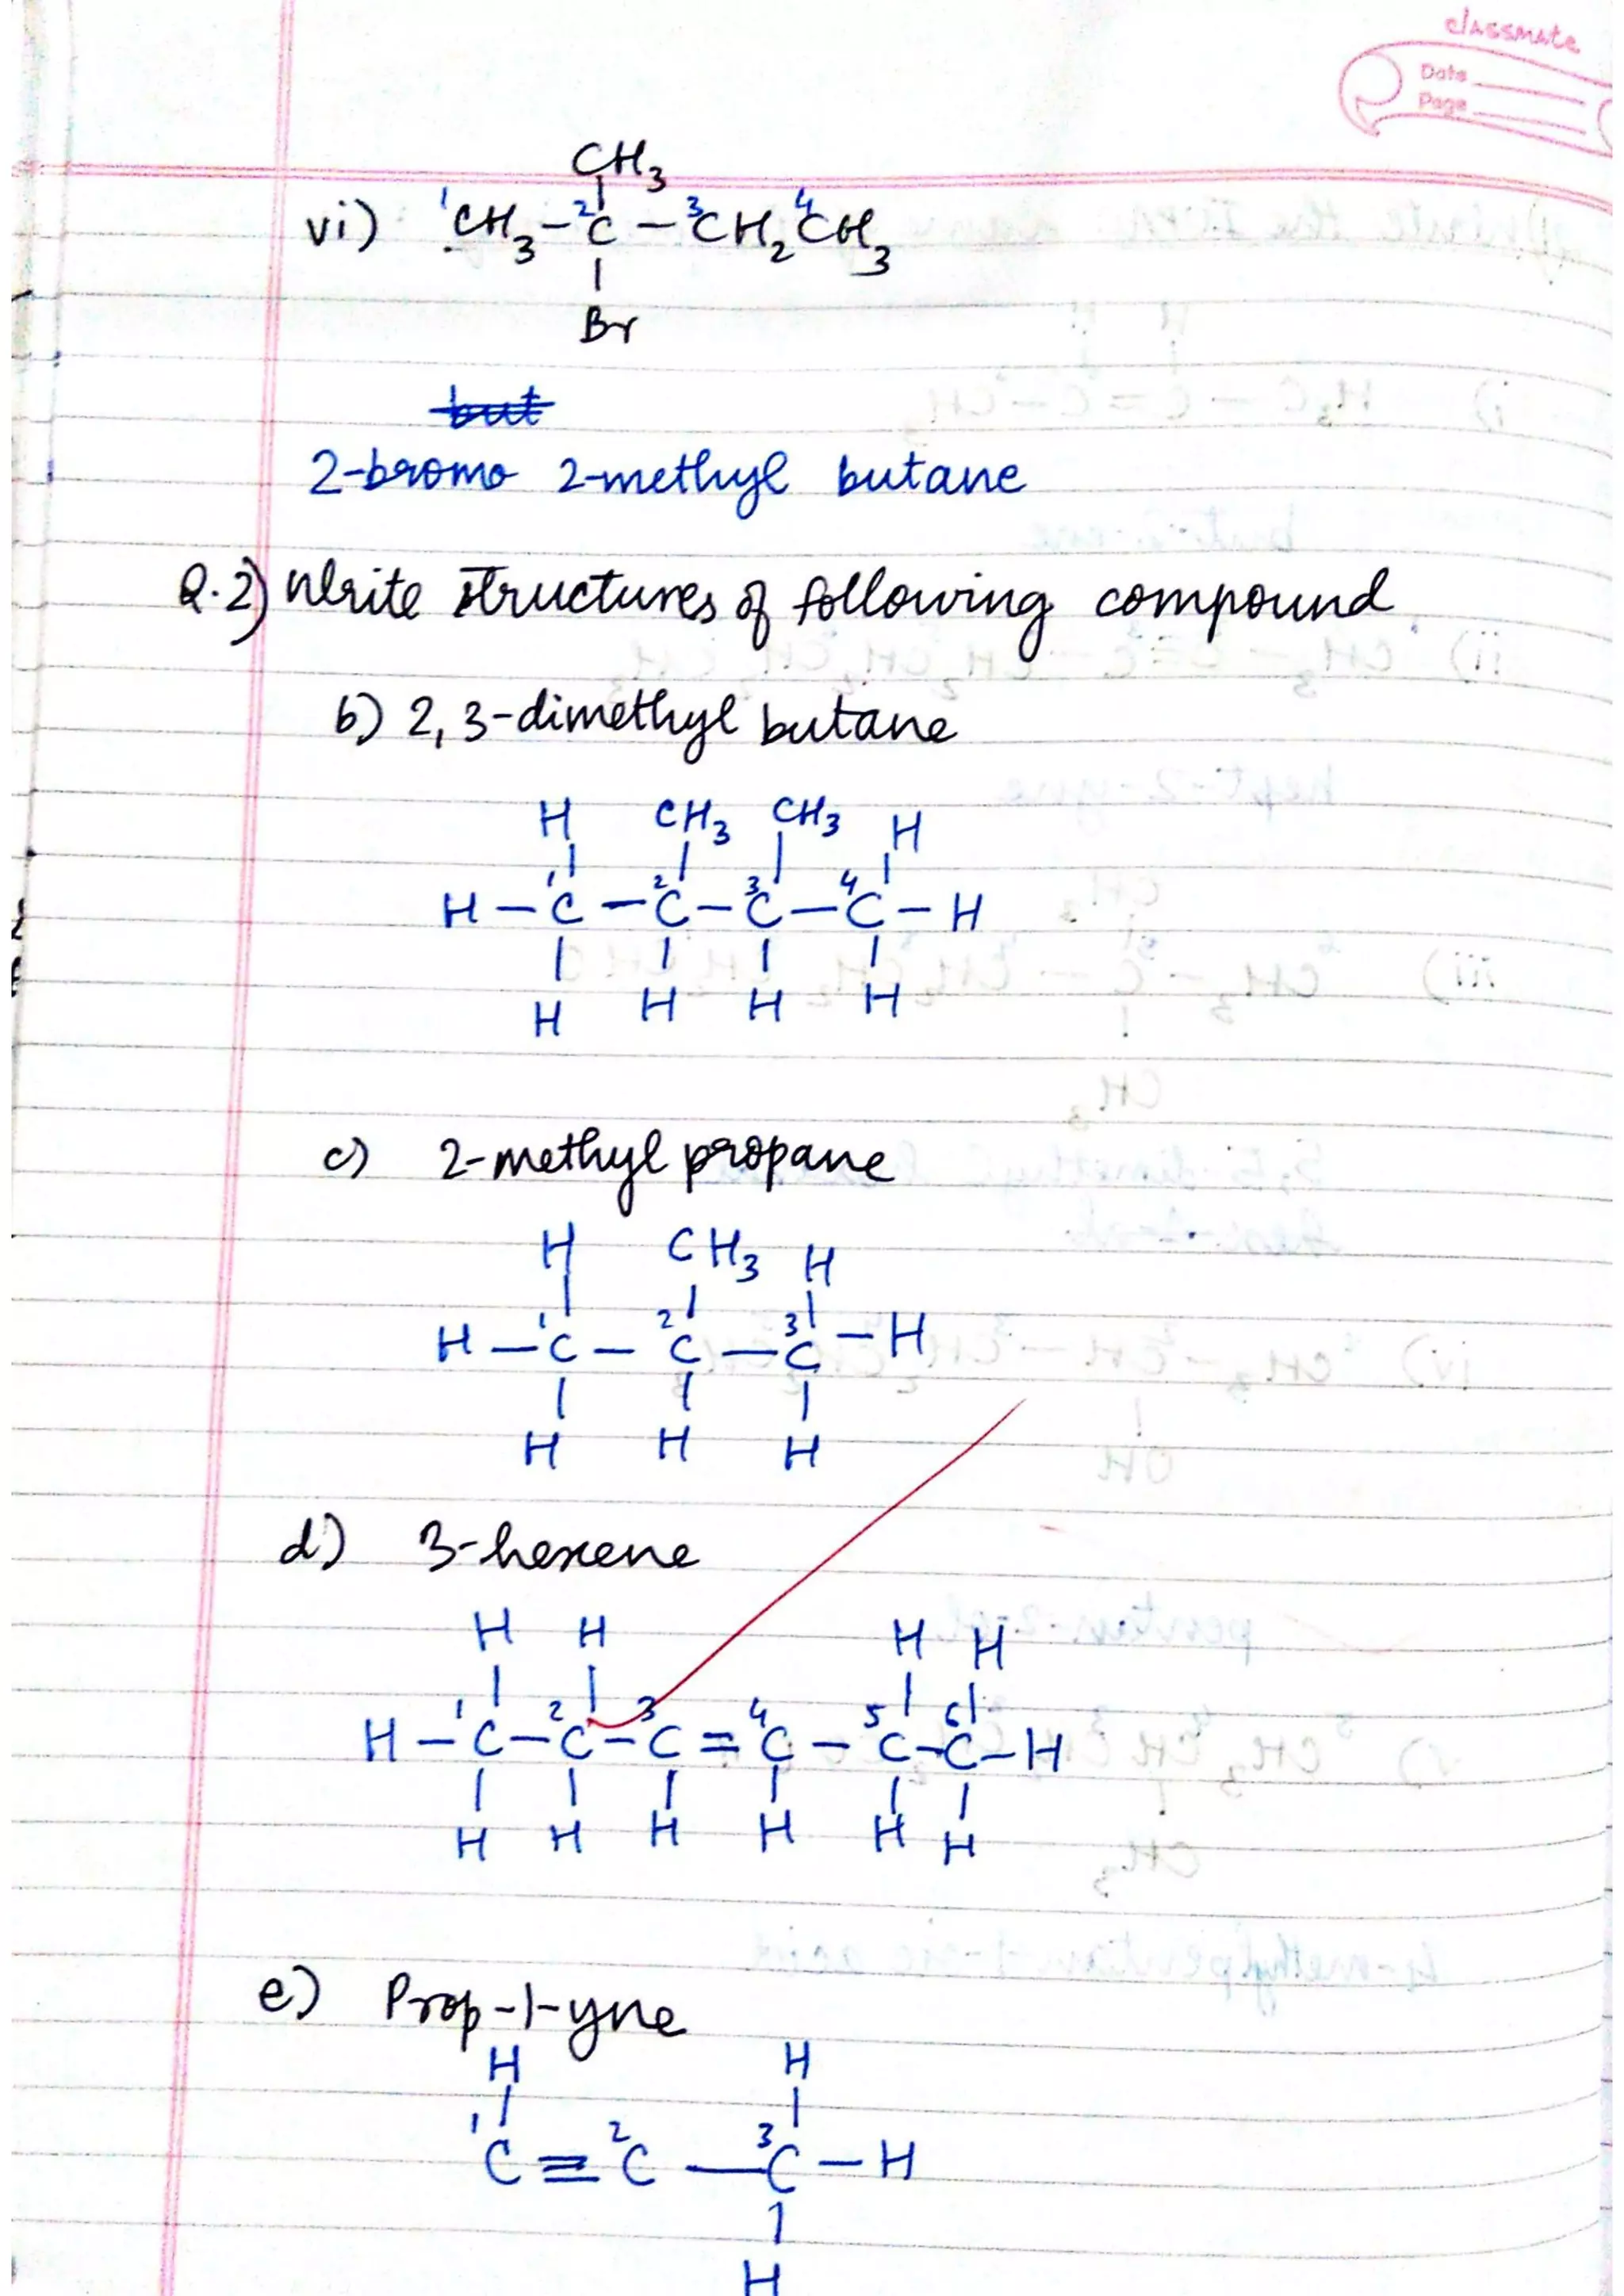 classmate
Date
Page
CH3
vi) 1CH3 - 2C - 3CH2 4CH3
Br
but
2-bromo 2-methyl butane
Q.2) Write structures of following compound
b) 2, 3-dimethyl butane
H CH3 CH3 H
H - 1C - 2C - 3C - 4C - H
H H H H
c) 2-methyl propane
H CH3 H
H - 1C - 2C - 3C - H
H H H
d) 3-hexene
H H H H
H - 1C - 2C - 3C = 4C - 5C - 6C - H
H H H H H H
e) Prop-1-yne
H H
1C ≡ 2C - 3C - H
H